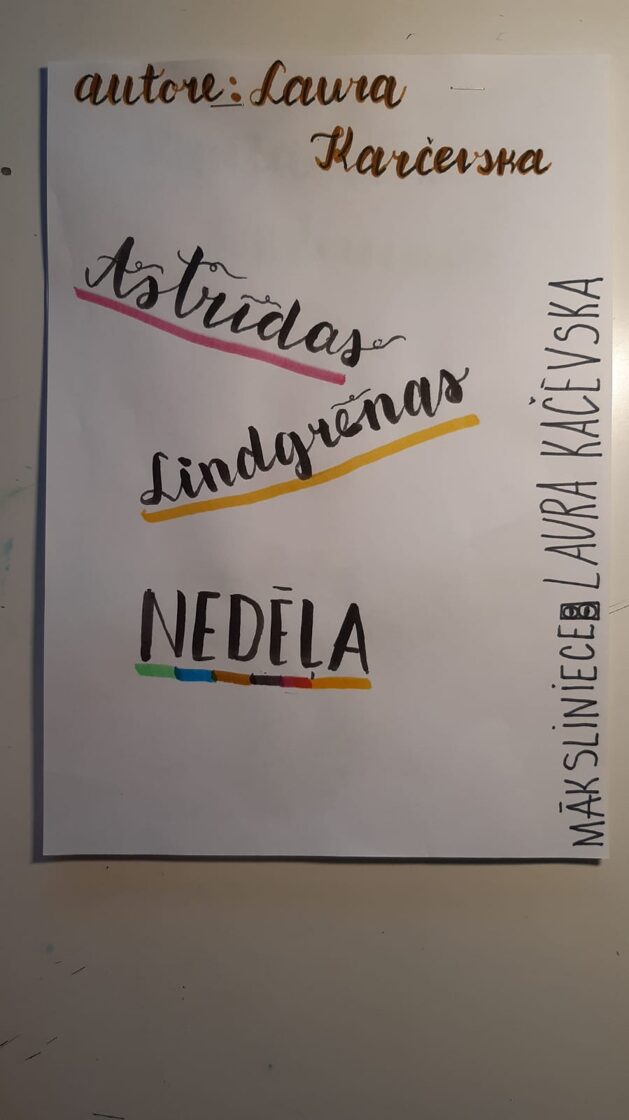 autore: Laura
Karčevska
Astrīdas
Lindgrēnas
NEDĒĻA
MĀKSLINIECE: LAURA KAČĒVSKA